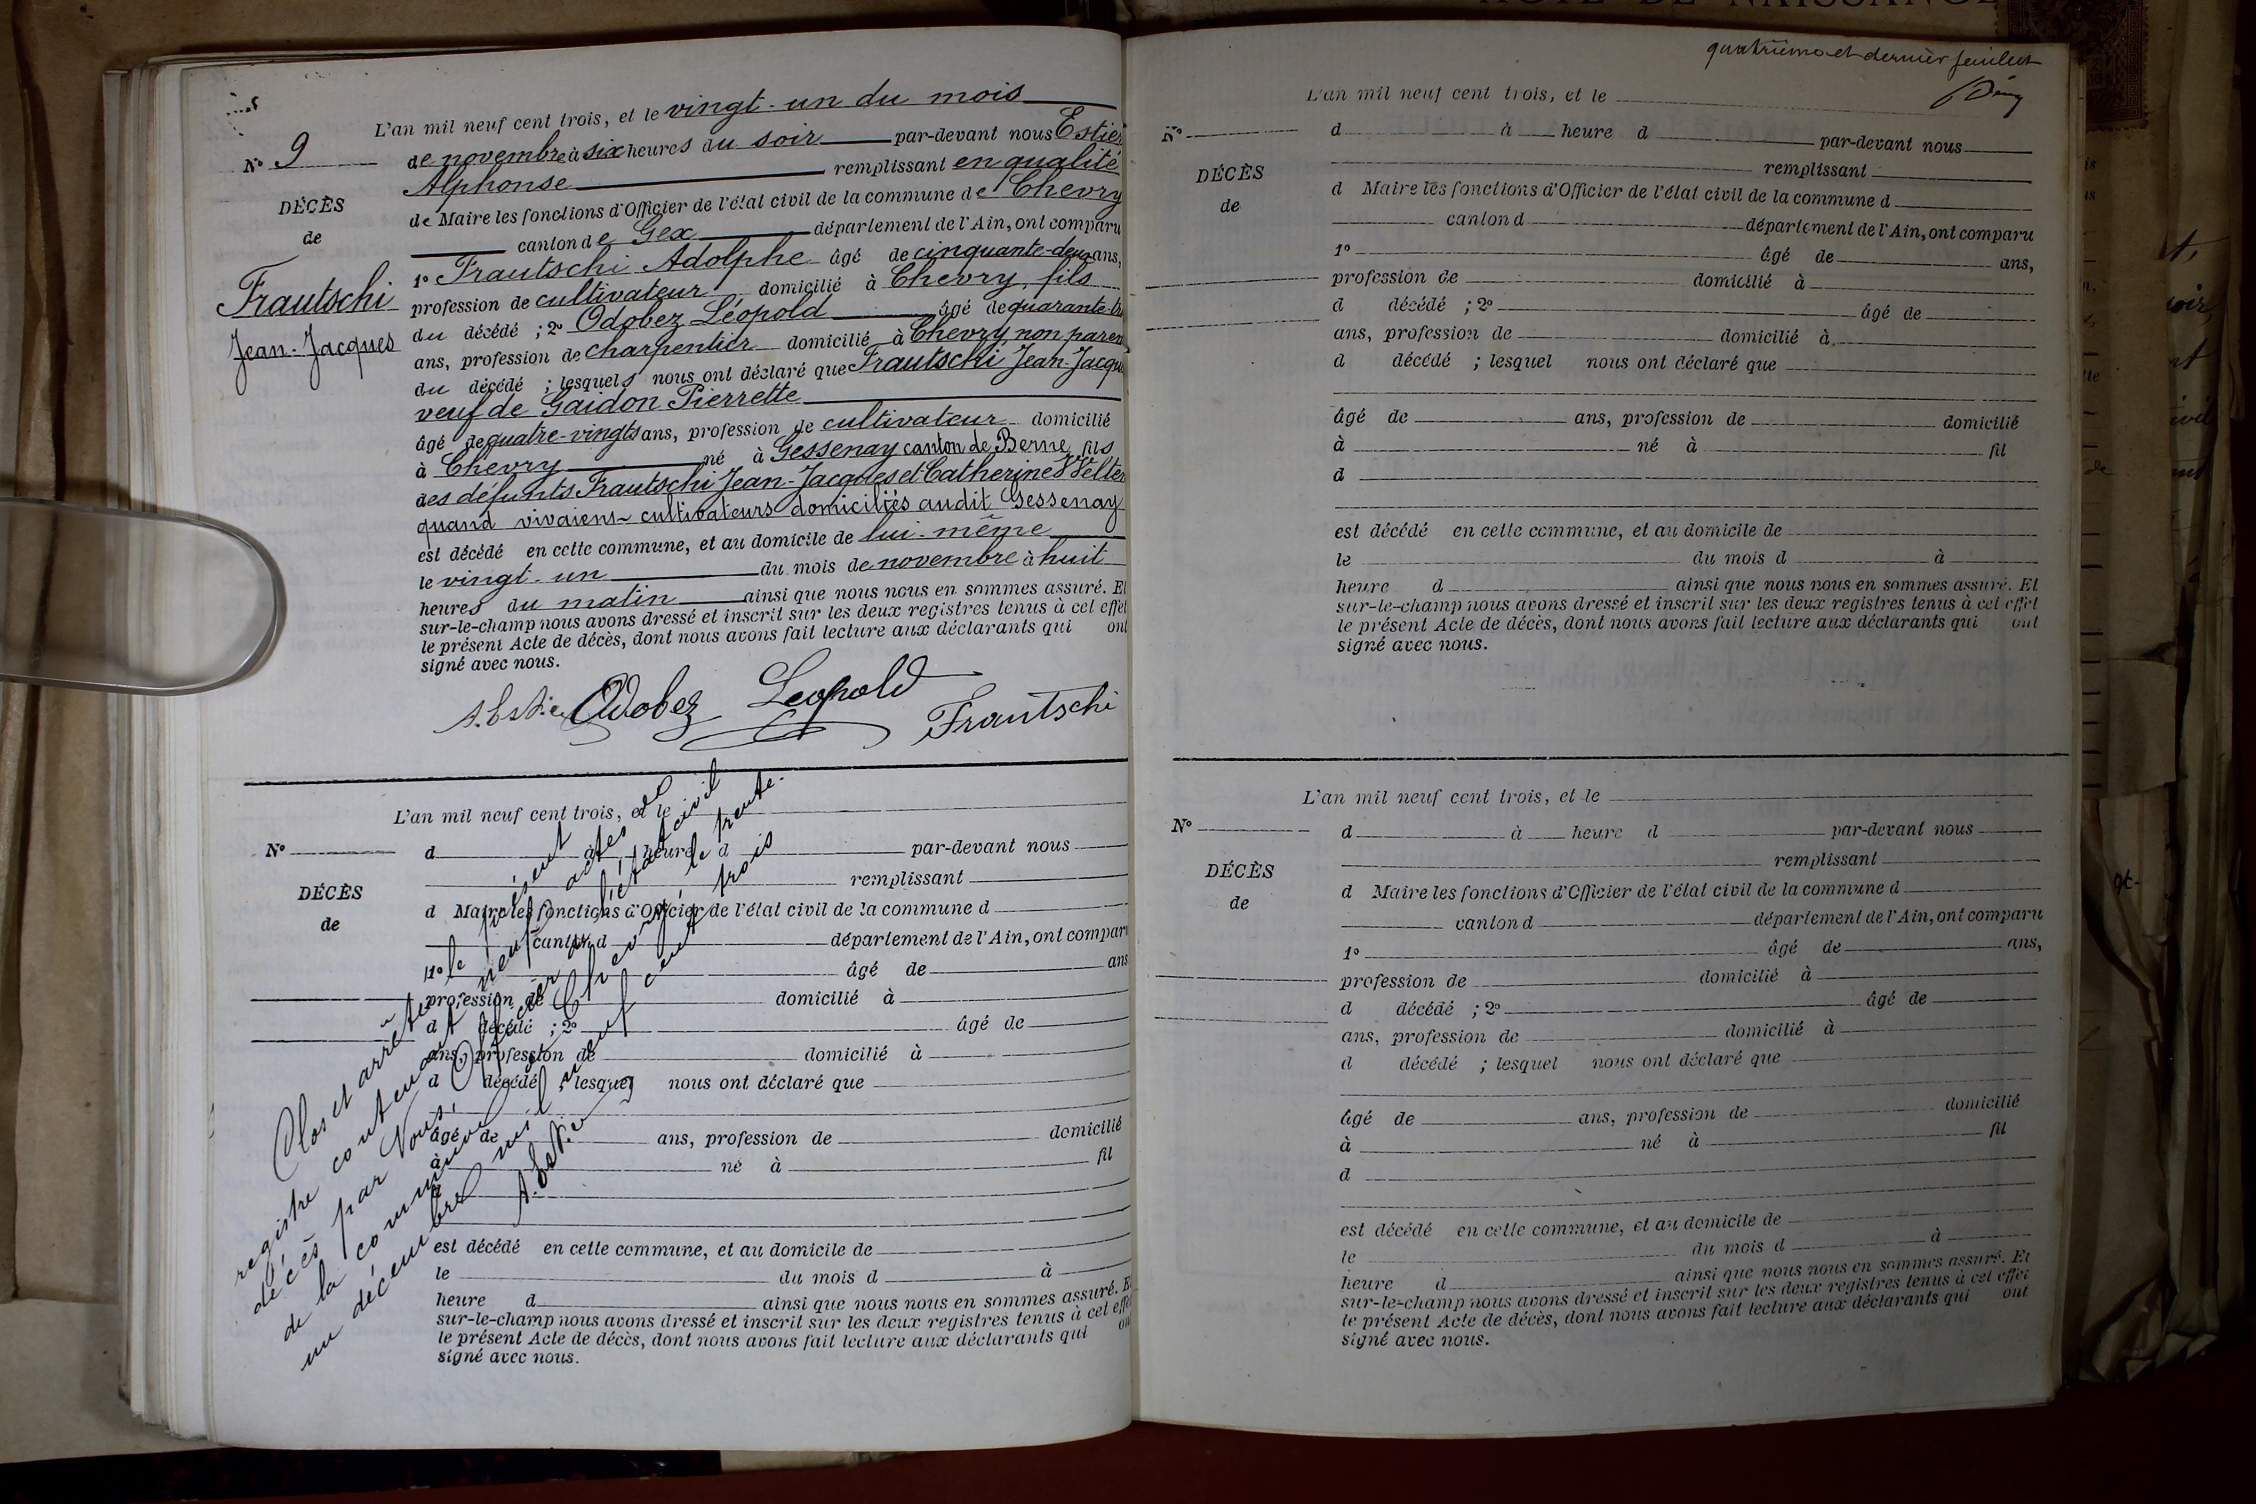 L'an mil neuf cent trois, et le vingt-un du mois
N° 9
de novembre à six heures du soir par-devant nous Estier
Alphonse remplissant en qualité
DÉCÈS
de Maire les fonctions d'Officier de l'état civil de la commune de Chevry
de
canton de Gex département de l'Ain, ont comparu
1° Frautschi Adolphe âgé de cinquante-deux ans,
Frautschi
profession de cultivateur domicilié à Chevry, fils
du décédé ; 2° Odobez Léopold âgé de quarante-
Jean-Jacques
ans, profession de charpentier domicilié à Chevry non paren
du décédé ; lesquels nous ont déclaré que Frautschi Jean-Jacqu
veuf de Gaidon Pierrette
âgé de quatre-vingts ans, profession de cultivateur domicilié
à Chevry né à Gessenay canton de Berne fils
des défunts Frautschi Jean-Jacques et Catherine Welten
quand vivaient cultivateurs domiciliés audit Gessenay
est décédé en cette commune, et au domicile de lui-même
le vingt-un du mois de novembre à huit
heures du matin ainsi que nous nous en sommes assuré. Et
sur-le-champ nous avons dressé et inscrit sur les deux registres tenus à cet effet
le présent Acte de décès, dont nous avons fait lecture aux déclarants qui ont
signé avec nous.
A. Estier Odobez Leopold
Frautschi
L'an mil neuf cent trois, et le
N°
d à heure d par-devant nous
remplissant
DÉCÈS
d Maire les fonctions d'Officier de l'état civil de la commune d
de
canton d département de l'Ain, ont compar
1° âgé de ans
profession de domicilié à
d décédé ; 2° âgé de
ans, profession de domicilié à
d décédé ; lesquel nous ont déclaré que
âgé de ans, profession de domicilié
à né à fil
d
est décédé en cette commune, et au domicile de
le du mois d à
heure d ainsi que nous nous en sommes assuré. Et
sur-le-champ nous avons dressé et inscrit sur les deux registres tenus à cet effet
le présent Acte de décès, dont nous avons fait lecture aux déclarants qui on
signé avec nous.
Clos et arrêté le présent
registre contenant neuf actes de
décès par Nous, Officier de l'état civil
de la commune de Chevry, le trente-
un décembre mil neuf cent trois
A. Estier
quatrième et dernier feuillet
L'an mil neuf cent trois, et le
N°
d à heure d par-devant nous
remplissant
DÉCÈS
d Maire les fonctions d'Officier de l'état civil de la commune d
de
canton d département de l'Ain, ont comparu
1° âgé de ans,
profession de domicilié à
d décédé ; 2° âgé de
ans, profession de domicilié à
d décédé ; lesquel nous ont déclaré que
âgé de ans, profession de domicilié
à né à fil
d
est décédé en cette commune, et au domicile de
le du mois d à
heure d ainsi que nous nous en sommes assuré. Et
sur-le-champ nous avons dressé et inscrit sur les deux registres tenus à cet effet
le présent Acte de décès, dont nous avons fait lecture aux déclarants qui ont
signé avec nous.
L'an mil neuf cent trois, et le
N°
d à heure d par-devant nous
remplissant
DÉCÈS
d Maire les fonctions d'Officier de l'état civil de la commune d
de
canton d département de l'Ain, ont comparu
1° âgé de ans,
profession de domicilié à
d décédé ; 2° âgé de
ans, profession de domicilié à
d décédé ; lesquel nous ont déclaré que
âgé de ans, profession de domicilié
à né à fil
d
est décédé en cette commune, et au domicile de
le du mois d à
heure d ainsi que nous nous en sommes assuré. Et
sur-le-champ nous avons dressé et inscrit sur les deux registres tenus à cet effet
le présent Acte de décès, dont nous avons fait lecture aux déclarants qui ont
signé avec nous.
ACTE DE NAISSANCE